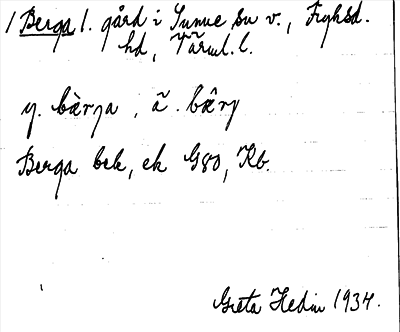 1 Berga 1. gård i Sunne sn v., Fryksd.
hd, Värml. l.
y. bàrga, ä. bârg
Berga bek, ek G80, Kb.
Greta Hedin 1934.